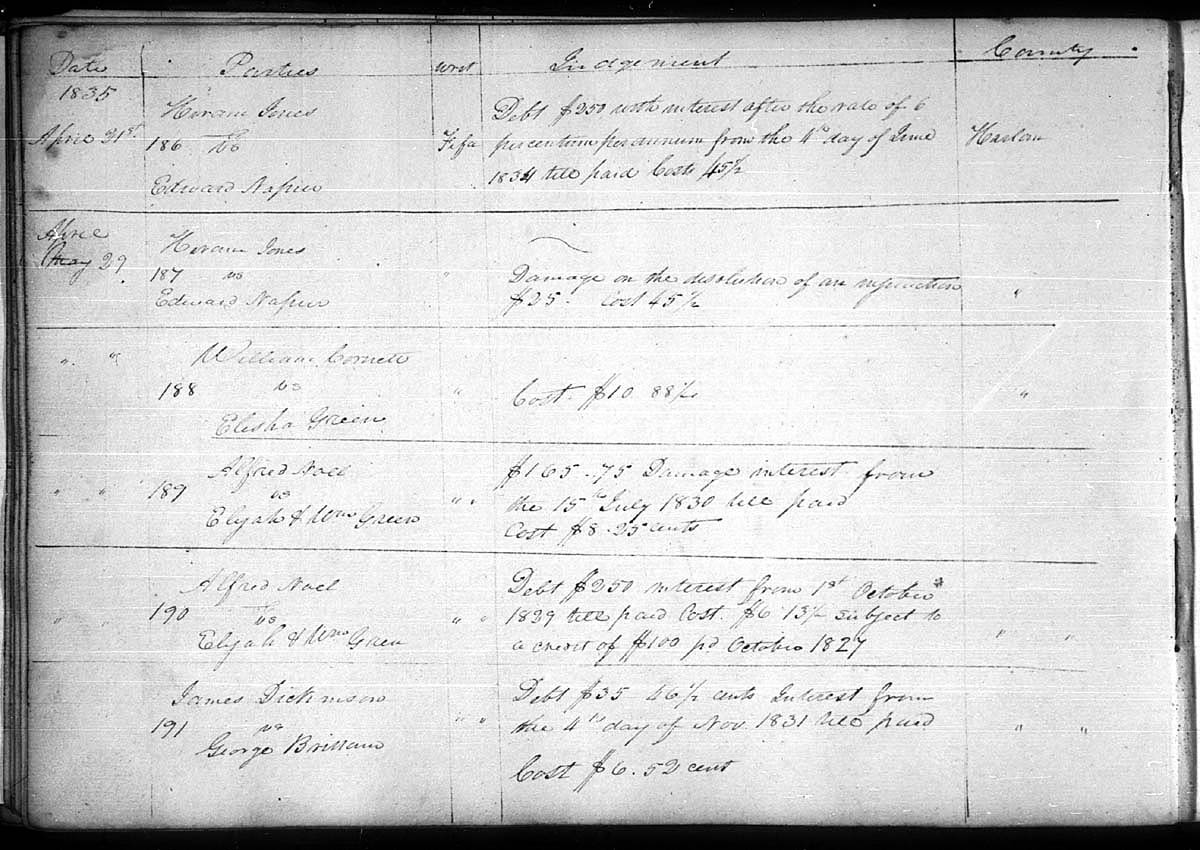 Date Parties Writ Judgement County
1835
Hiram Jones Debt $250 with interest after the rate of 6
April 21st 186 vs Fifa per centum per annum from the 4th day of June Harlan
Edward Napier 1834 till paid Costs 45½
April
May 29 Hiram Jones
187 vs " Damage on the desolution of an injunction "
Edward Napier $25. Cost 45½
" " William Cornett
188 vs " Cost. $10 88½ "
Elisha Green
Alfred Noel $165-75 Damage interest from
" " 189 vs " " the 15th July 1830 till paid
Elijah & Wm Green Cost $8-25 cents
Alfred Noel Debt $250 interest from 1st October
" " 190 vs " " 1829 till paid Cost. $6 13½ subject to
Elijah & Wm Green a credit of $100 pd October 1827 " "
James Dickinson Debt $35 46½ cents Interest from
191 vs " " the 4th day of Nov. 1831 till paid " "
George Brittain
Cost $6.52 cent